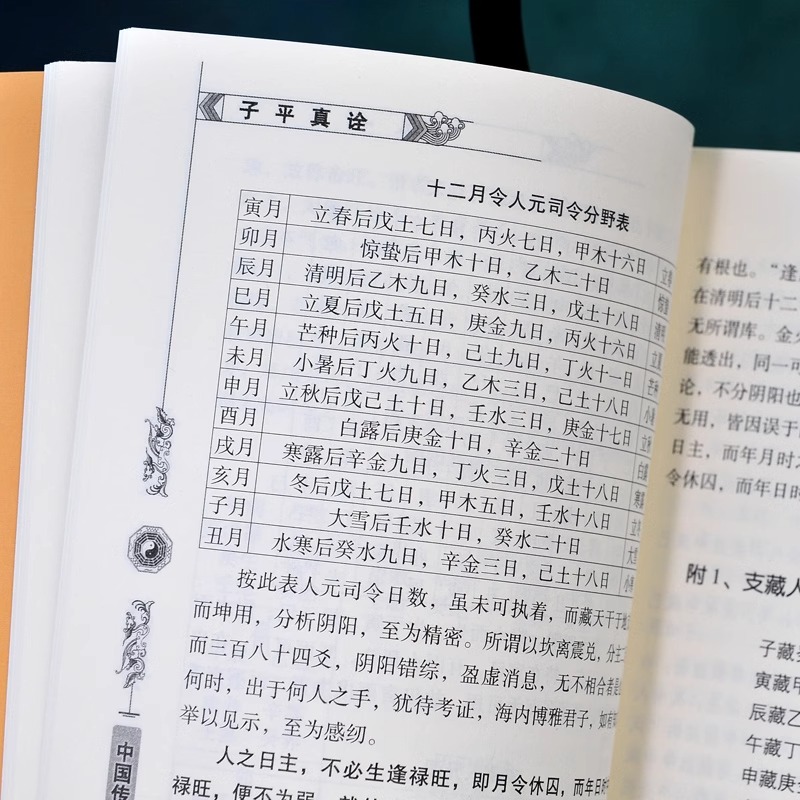 子平真诠
十二月令人元司令分野表
寅月 立春后戊土七日，丙火七日，甲木十六日 立春
卯月 惊蛰后甲木十日，乙木二十日 惊蛰
辰月 清明后乙木九日，癸水三日，戊土十八日 清明
巳月 立夏后戊土五日，庚金九日，丙火十六日 立夏
午月 芒种后丙火十日，己土九日，丁火十一日 芒种
未月 小暑后丁火九日，乙木三日，己土十八日 小暑
申月 立秋后戊己土十日，壬水三日，庚金十七日 立秋
酉月 白露后庚金十日，辛金二十日 白露
戌月 寒露后辛金九日，丁火三日，戊土十八日 寒露
亥月 冬后戊土七日，甲木五日，壬水十八日 立冬
子月 大雪后壬水十日，癸水二十日 大雪
丑月 水寒后癸水九日，辛金三日，己土十八日 小寒
按此表人元司令日数，虽未可执着，而藏天干于地
而坤用，分析阴阳，至为精密。所谓以坎离震兑，分主二
而三百八十四爻，阴阳错综，盈虚消息，无不相合者是
何时，出于何人之手，犹待考证，海内博雅君子，如有
举以见示，至为感纫。
人之日主，不必生逢禄旺，即月令休囚，而年日时
禄旺，便不为弱
中国传
有根也。“逢
在清明后十二
无所谓库。金
能透出，同一可
论，不分阴阳也
无用，皆因误于
日主，而年月时
令休囚，而年日时
附1、支藏人
子藏
寅藏甲
辰藏乙
午藏丁
申藏庚